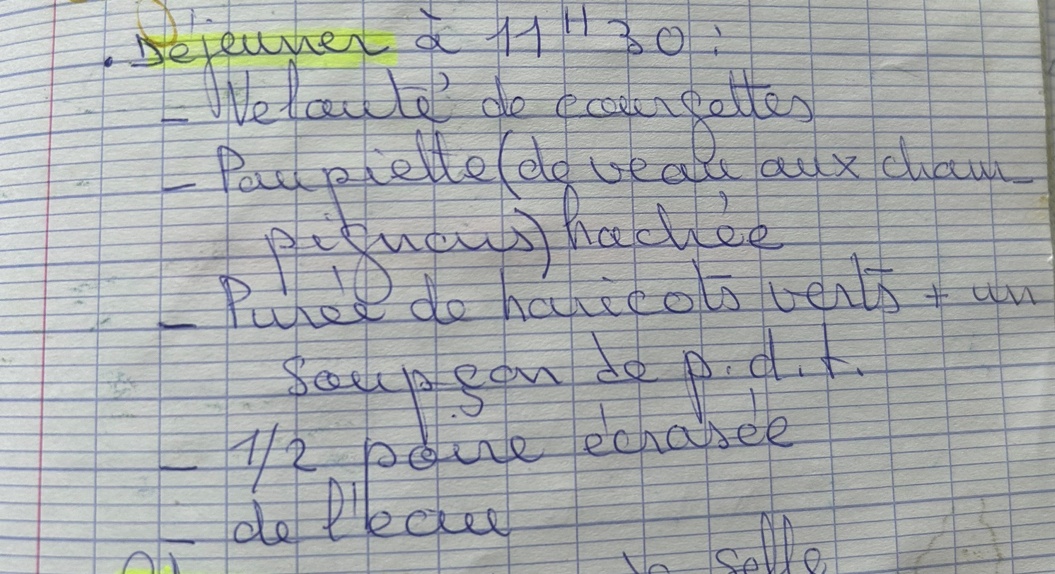 . Déjeuner à 11H30 :
- Velouté de courgettes
- Paupiette (de veau aux cham-
pignons) hachée
- Purée de haricots verts + un
soupçon de p.d.t.
- 1/2 poire écrasée
- de l'eau
la selle